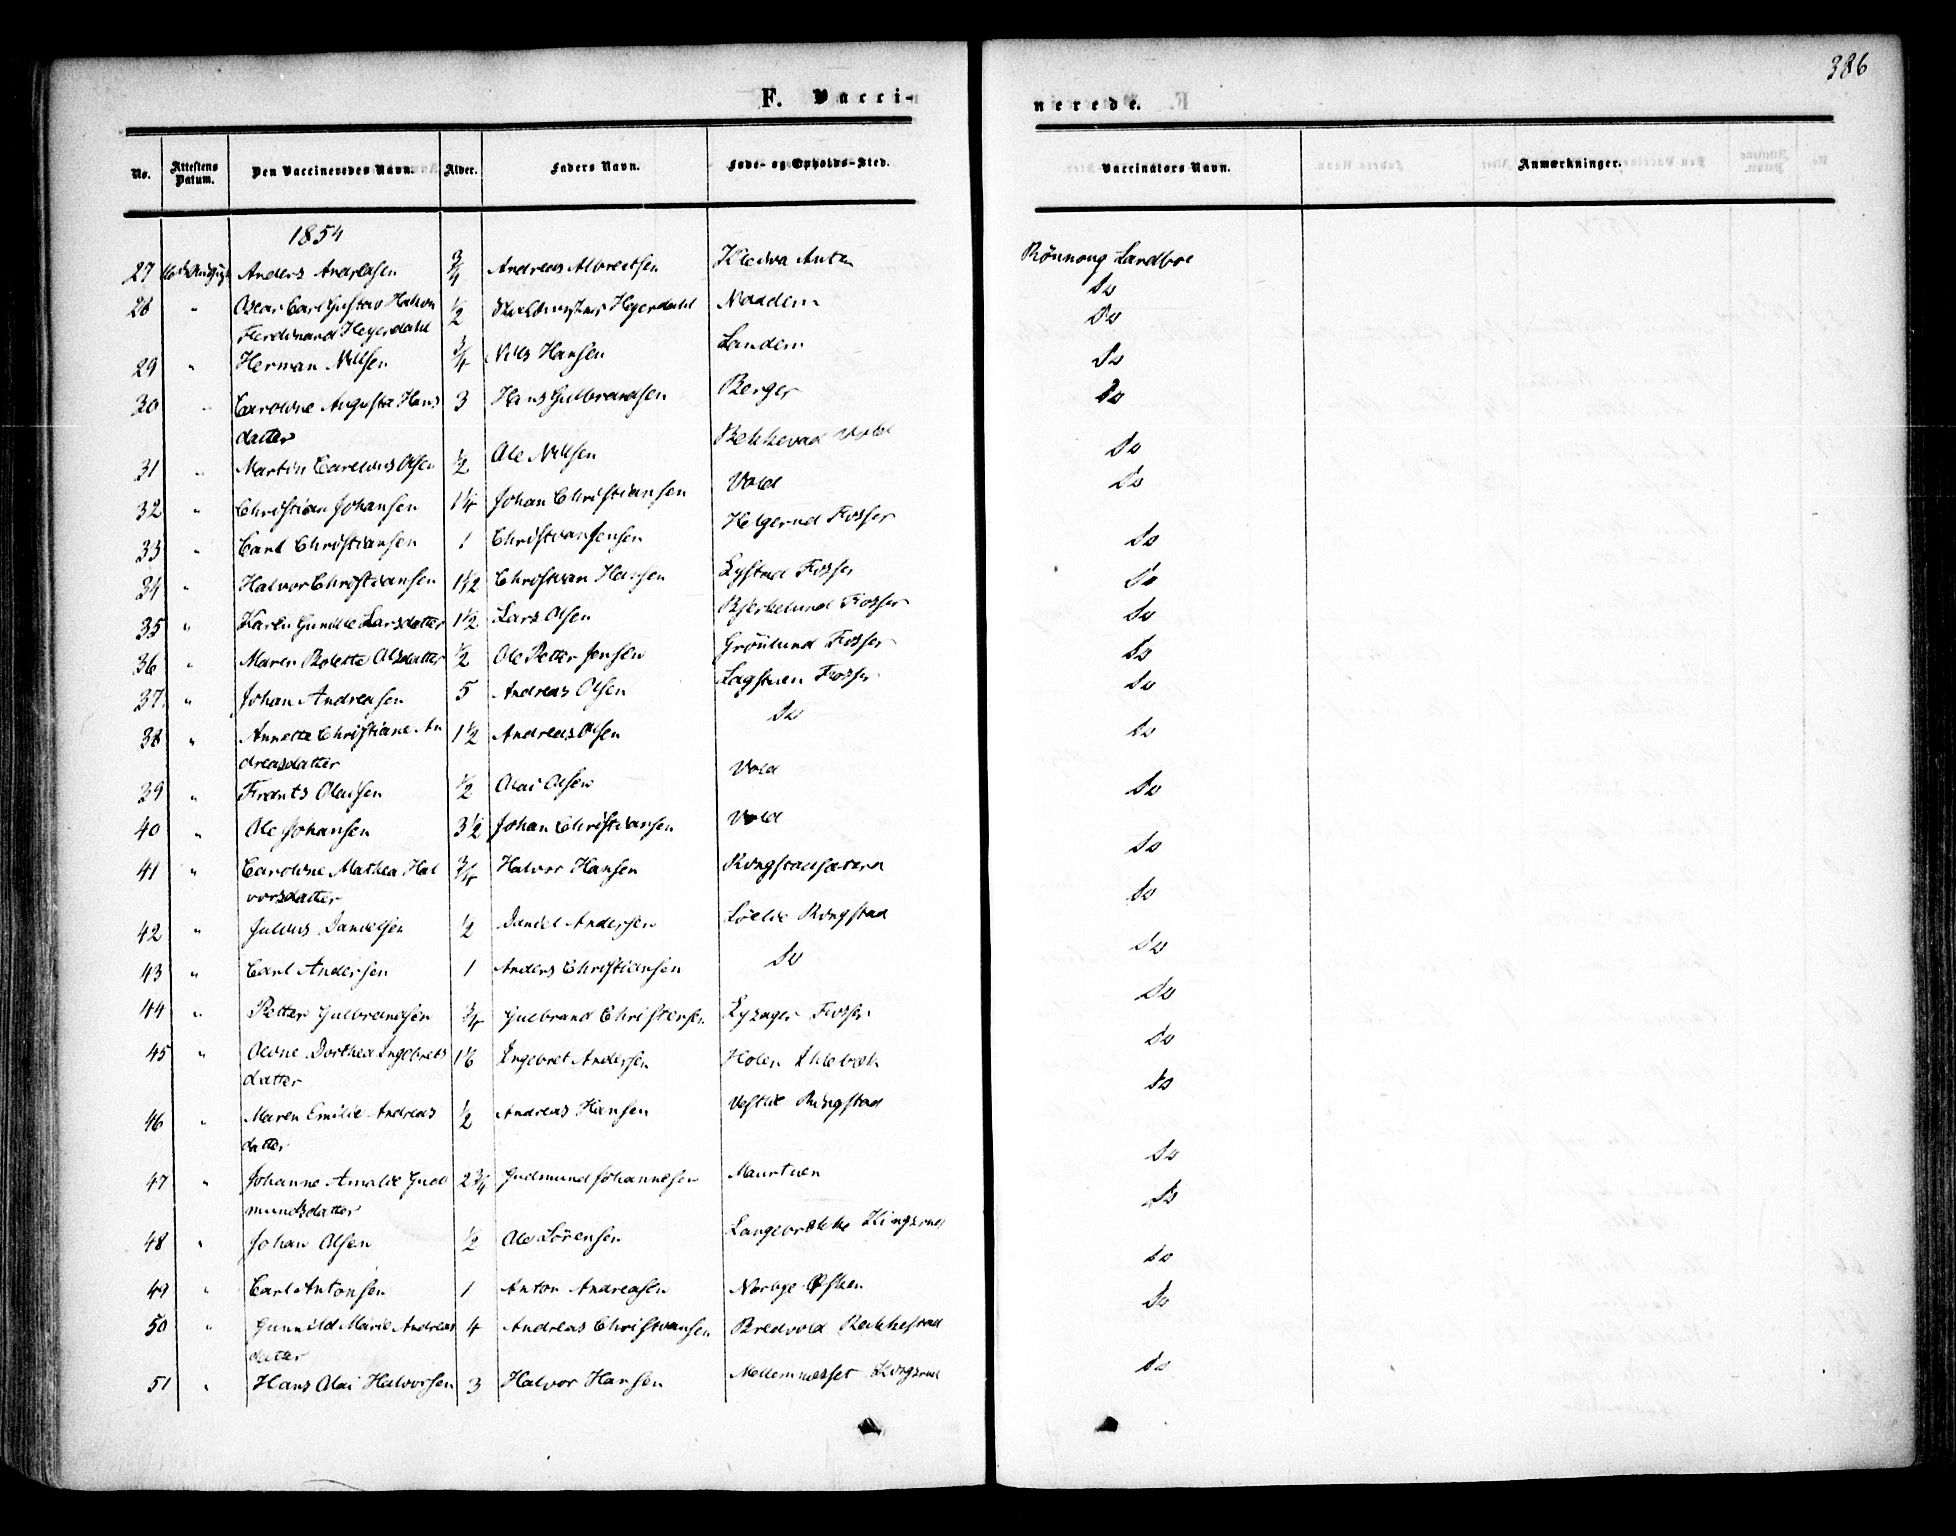 386
F. Vaccinerede.
No. Attestens Datum. Den Vaccineredes Navn. Alder. Faders Navn. Føde- og Opholds-Sted. Vaccinators Navn. Anmærkninger.
1854
27 16de August Anders Andreasen 3/4 Andreas Albrectsen
28 " Oscar Carl Gustav Halvor 1/2 Heyerdahl Do
Ferdinand Heyerdahl Do
29 " Herman Nilsen 3/4 Nils Hansen Do
30 " Caroline Augusta Hans 3 Hans Gulbrandsen Berger Do
datter
31 " Martin Olsen 1/2 Ole Nilsen Vold Do
32 " Christian Johansen 1 1/4 Johan Christiansen Vold Do
33 " Carl Christiansen 1 Christian Jensen Fosser Do
34 " Halvor Christiansen 1 1/2 Christian Hansen Lystad Fosser Do
35 " Karen Gunilde Larsdatter 1 1/2 Lars Olsen Bjerkelund Fosser Do
36 " Maren Bolette Olsdatter 1/2 Ole Petter Jensen Grönlund Fosser Do
37 " Johan Andreasen 5 Andreas Olsen Lagstuen Fosser Do
38 " Annette Christiane An 1 1/2 Andreas Olsen Do Do
dreasdatter
39 " Frants Olaisen 1/2 Olai Olsen Vold Do
40 " Ole Johansen 3 1/2 Johan Christiansen Vold Do
41 " Caroline Mathea Hal 3/4 Halvor Hansen Ringstadsætern Do
vorsdatter
42 " Julius Danielsen 1/2 Daniel Andersen Ringstad Do
43 " Carl Andersen 1 Anders Christiansen Do Do
44 " Petter Gulbrandsen 3/4 Gulbrand Christersen Lysager Fosser Do
45 " Oline Dorthea Ingebrets 1 1/6 Engebret Andersen Holen Do
datter
46 " Maren Emilie Andreas 1/2 Andreas Hansen Vestlie Ringstad Do
datter
47 " Johanne Amalie Gud 2 3/4 Gudmund Johannesen Do
mundsdatter
48 " Johan Olsen 1/2 Ole Sörensen Langebrække Kingsrud Do
49 " Carl Antonsen 1 Anton Andreasen Do
50 " Gunnild Marie Andreas 4 Andreas Christiansen Bredvold Rakkestad
datter
51 " Hans Olai Halvorsen 3 Halvor Hansen Kingsrud Do